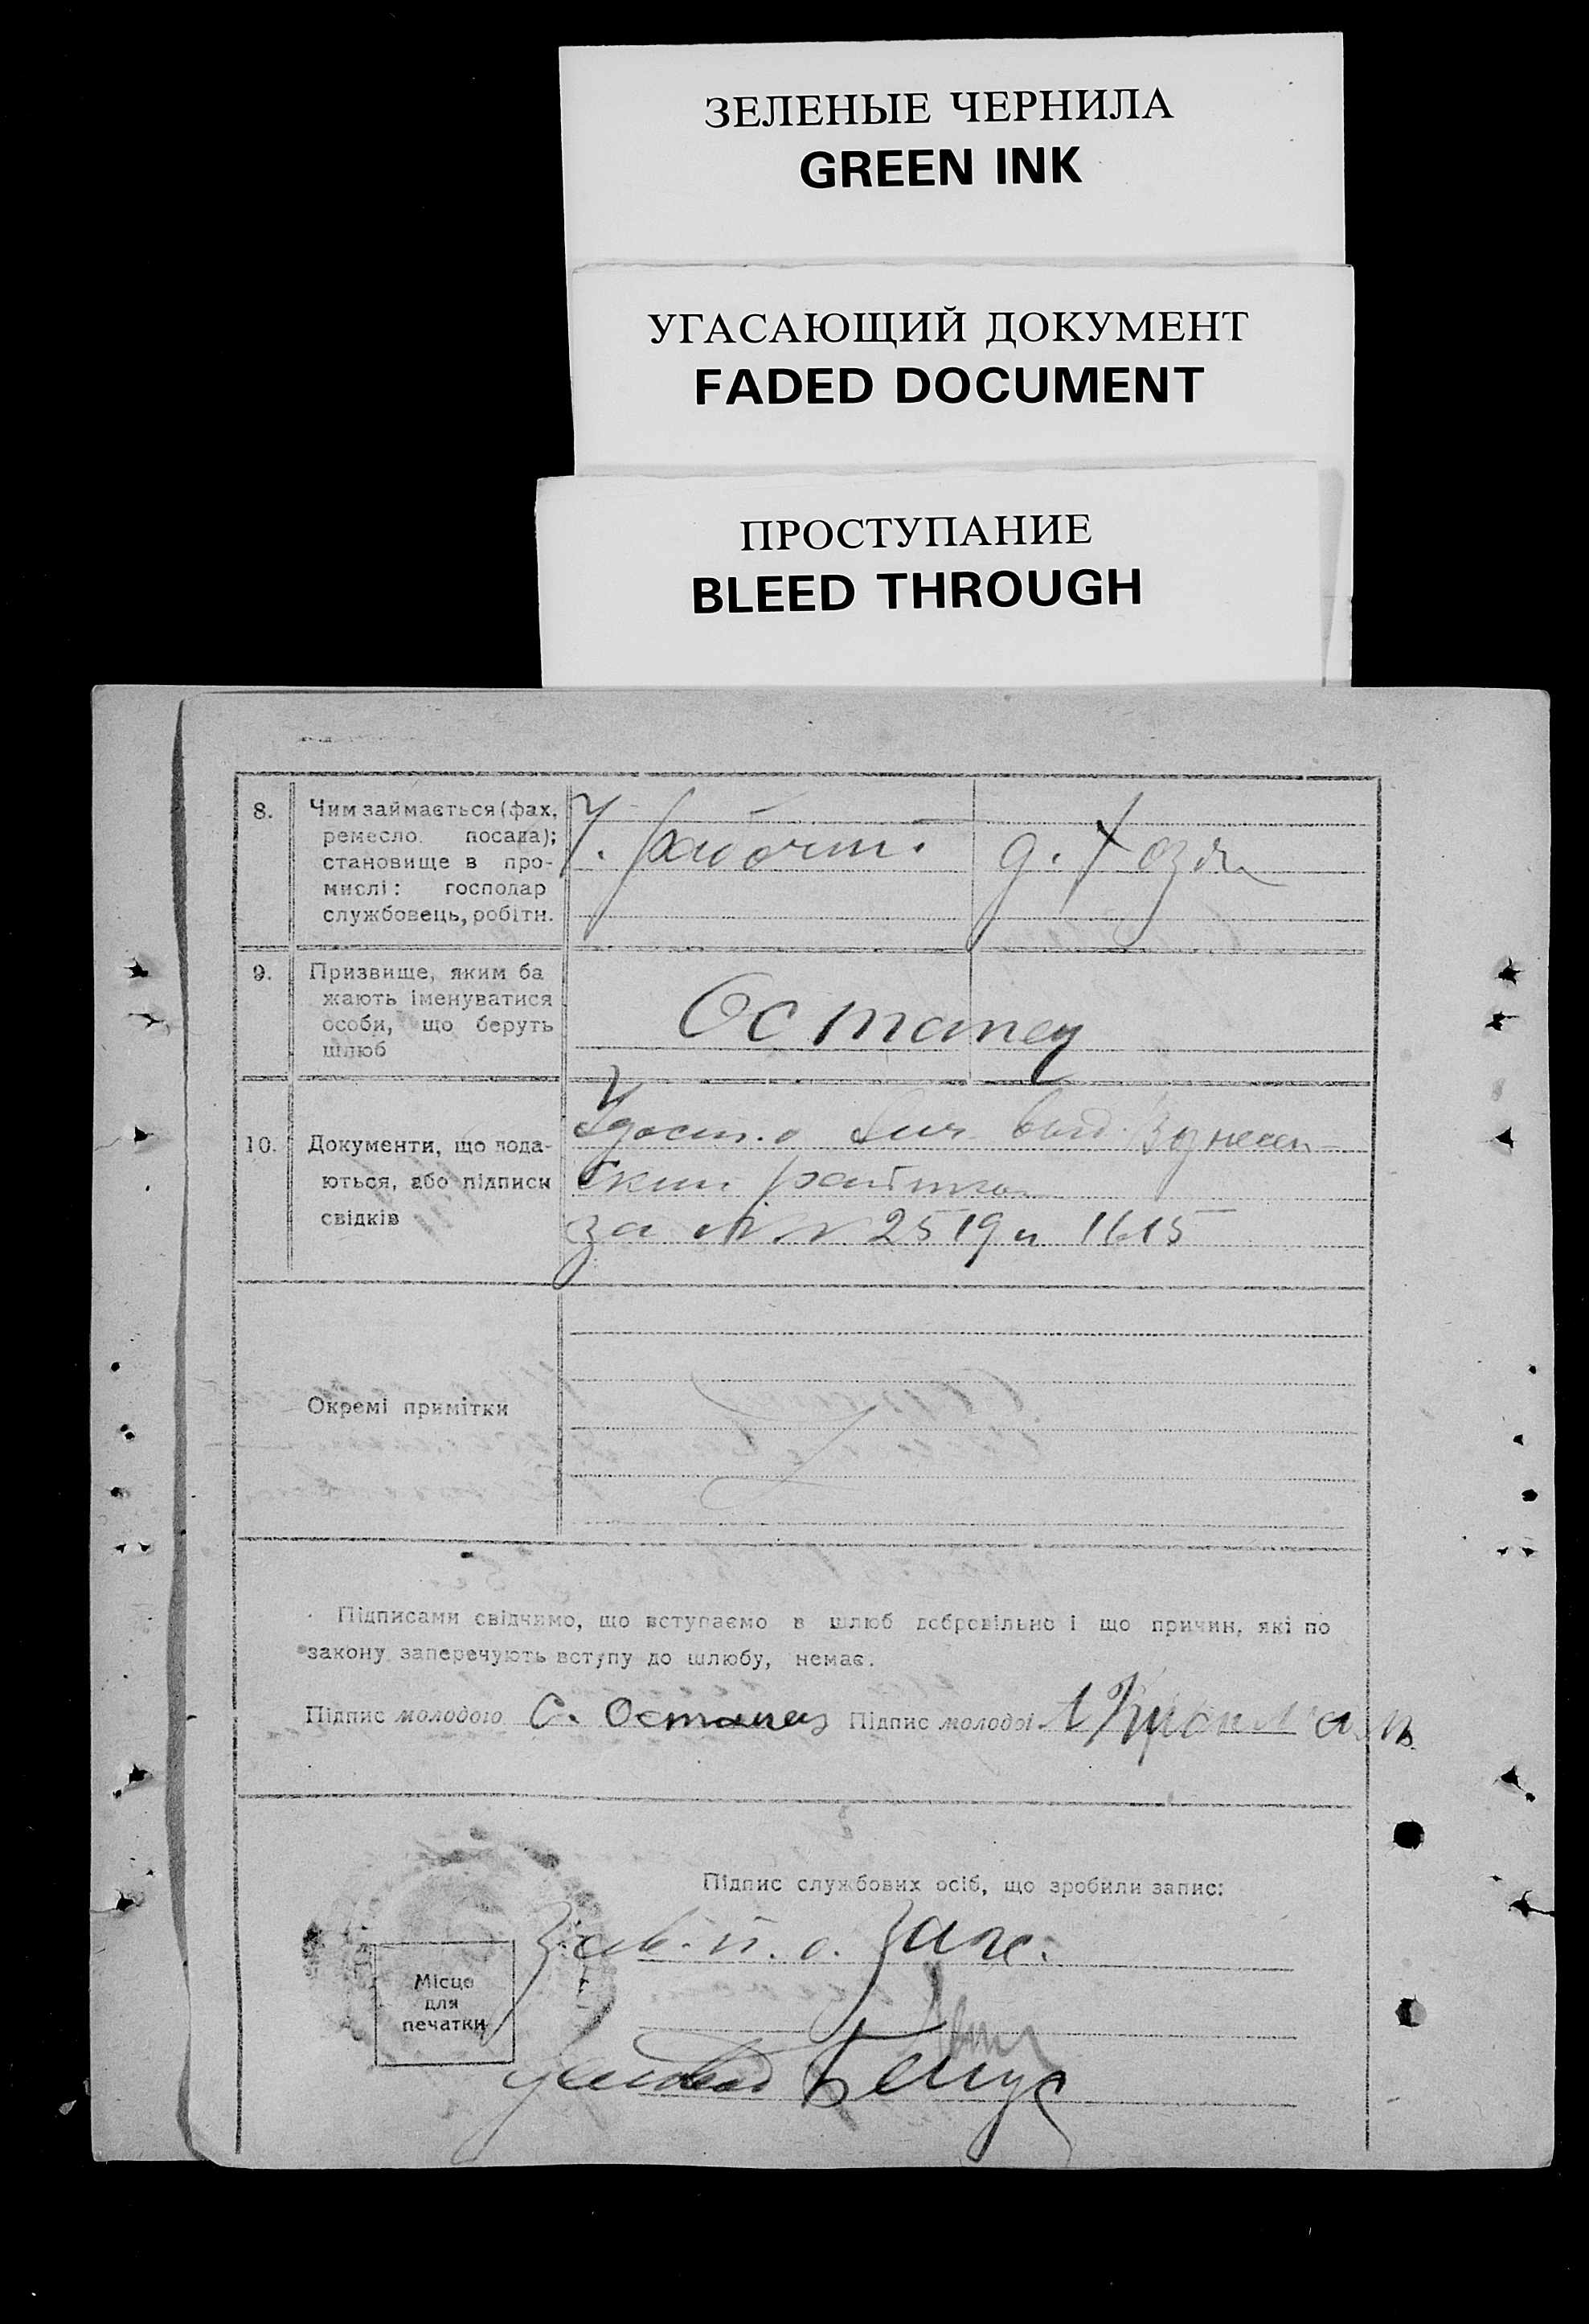 ЗЕЛЕНЫЕ ЧЕРНИЛА
GREEN INK
УГАСАЮЩИЙ ДОКУМЕНТ
FADED DOCUMENT
ПРОСТУПАНИЕ
BLEED THROUGH
8. Чим займається (фах,
ремесло, посада);
становище в про-
мислі: господар
службовець, робітн.
Ч. рабочий.
д. хозяй
9. Призвище, яким ба
жають іменуватися
особи, що беруть
шлюб
Остапец
10. Документи, що пода-
ються, або підписи
свідків
Удост.о Лич. выд. Вознесен-
ским
за №№ 2519 и 1615
Окремі примітки
Підписами свідчимо, що вступаємо в шлюб добровільно і що причин, які по
закону заперечують вступу до шлюбу, немає.
Підпис молодого С. Остапец Підпис молодої
Підпис службових осіб, що зробили запис:
Зав. п. о. Загс.
Місце
для
печатки